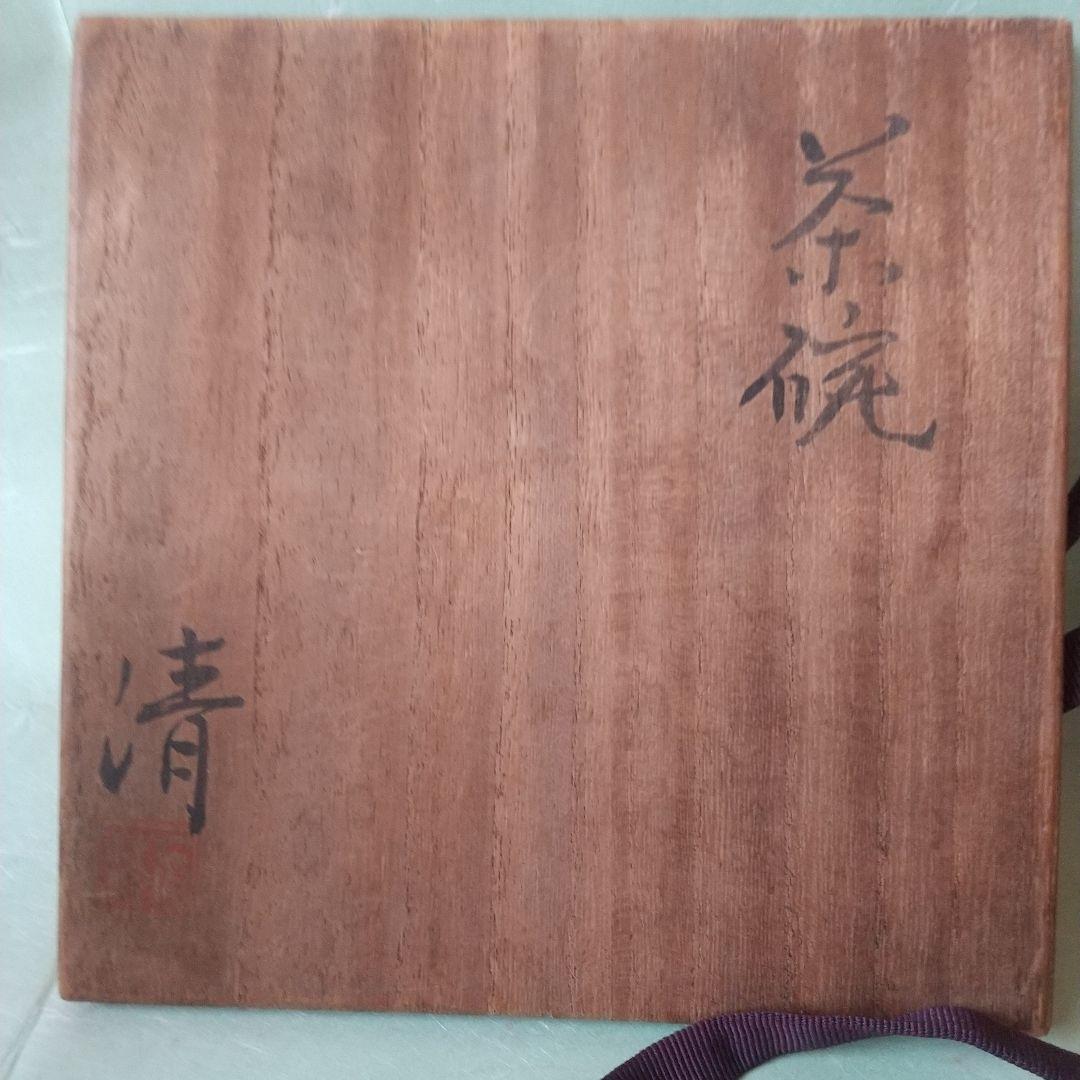 茶碗
清